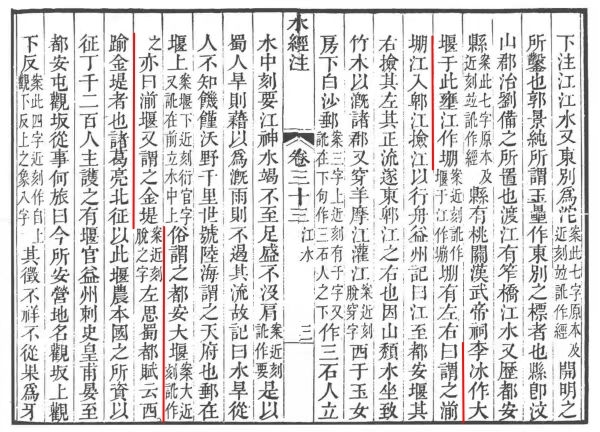 下注江江水又東別為沱案此七字原本及近刻竝訛作經開明之
所鑿也郭景純所謂玉壘作東別之標者也縣卽汶
山郡治劉備之所置也渡江有笮橋江水又歷都安
縣案此七字原本及近刻竝訛作經縣有桃關漢武帝祠李冰作大
堰于此壅江作堋案近刻訛作堰于江作塴堋有左右口謂之湔
堋江入郫江撿江以行舟益州記曰江至都安堰其
右撿其左其正流遂東郫江之右也因山頹水坐致
竹木以溉諸郡又穿羊摩江灌江案近刻脫穿字西于玉女
房下白沙郵案三字上近刻有于字又訛在下句作三石人之下作三石人立
水經注
卷三十三
江水
三
水中刻要江神水竭不至足盛不沒肩案近刻訛作要是以
蜀人旱則藉以為溉雨則不遏其流故記曰水旱從
人不知饑饉沃野千里世號陸海謂之天府也郵在
堰上案堰下近刻衍官字又訛在前立水中上俗謂之都安大堰案大近刻訛作
之亦曰湔堰又謂之金堤案近刻脫之字左思蜀都賦云西
踰金堤者也諸葛亮北征以此堰農本國之所資以
征丁千二百人主護之有堰官益州刺史皇甫晏至
都安屯觀坂從事何旅曰今所安營地名觀坂上觀
下反案此四字近刻作自上觀下反上之象入字其徵不祥不從果為牙